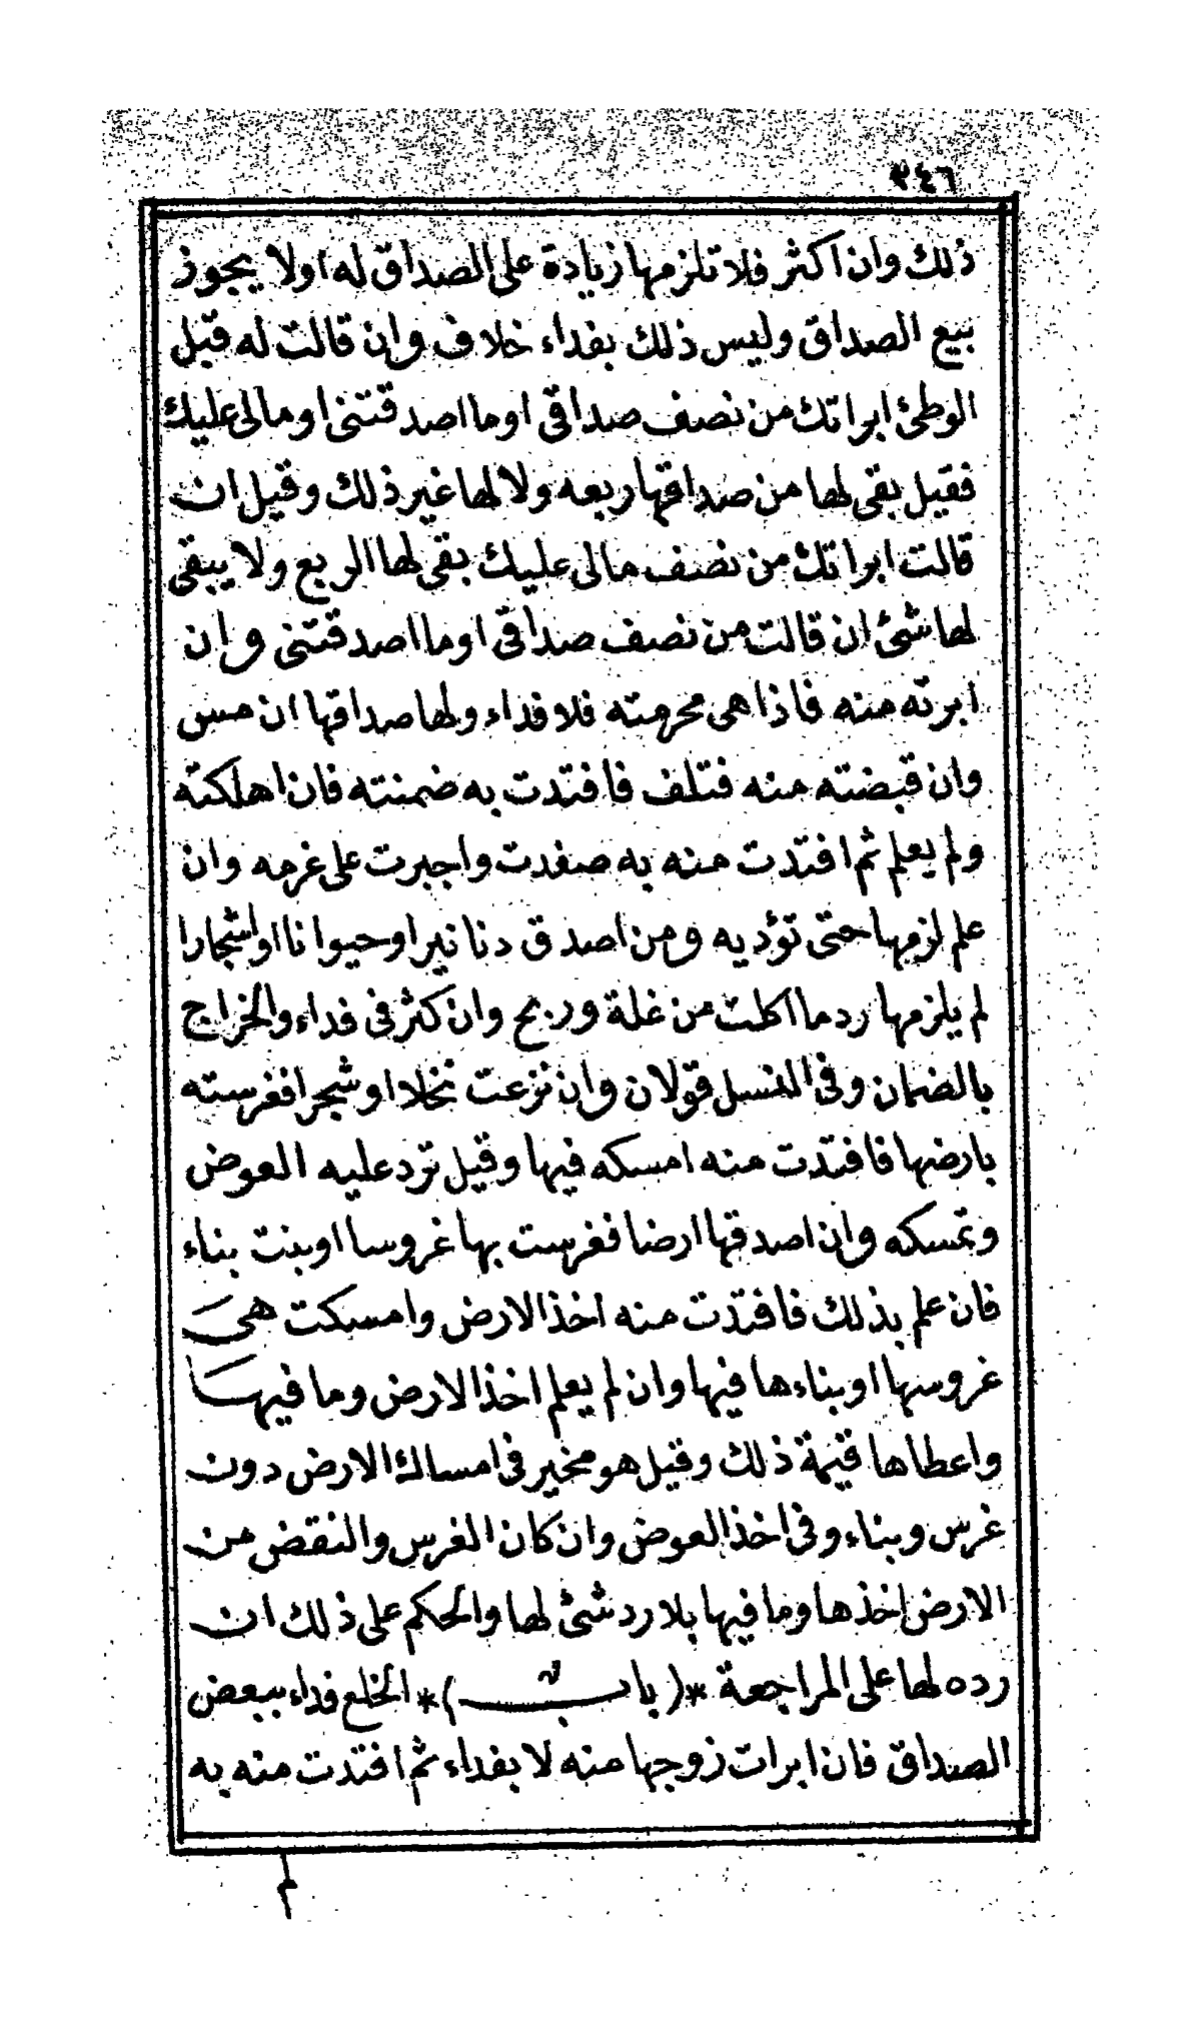 ٣٤٦
ذلك وان اكثر فلا تلزمها زيادة على الصداق له اولا يجوز
بيع الصداق وليس ذلك بفداء خلاف وان قالت له قبل
الوطئ ابراتك من نصف صداقى او ما اصدقتنى او مالى عليك
فقيل بقى لها من صداقها ربعه ولا لها غير ذلك وقيل ان
قالت ابراتك من نصف مالى عليك بقى لها الربع ولا يبقى
لها شئ ان قالت من نصف صداقى او ما اصدقتنى وان
ابرته منه فاذا هى محرمته فلا فداء ولها صداقها ان مس
وان قبضته منه فتلف فافتدت به ضمنته فان اهلكته
ولم يعلم ثم افتدت منه به صفدت واجبرت على غرمه وان
علم لزمها حتى تؤديه ومن اصدق دنانير او حيوانا او اشجارا
لم يلزمها رد ما اكلت من غلة وربح وان كثر فى فداء والخراج
بالضمان وفى النسل قولان وان نزعت نخلا او شجرا فغرسته
بارضها فافتدت منه امسكه فيها وقيل ترد عليه العوض
وتمسكه وان اصدقها ارضا فغرست بها غروسا او بنت بناء
فان علم بذلك فافتدت منه اخذ الارض وامسكت هى
غروسها او بناءها فيها وان لم يعلم اخذ الارض وما فيها
واعطاها قيمة ذلك وقيل هو مخير فى امساك الارض دون
غرس وبناء وفى اخذ العوض وان كان الغرس والنقض من
الارض اخذها وما فيها بلا رد شئ لها والحكم على ذلك ان
رده لها على المراجعة *( باب )* الخلع فداء ببعض
الصداق فان ابرات زوجها منه لا بفداء ثم افتدت منه به
م